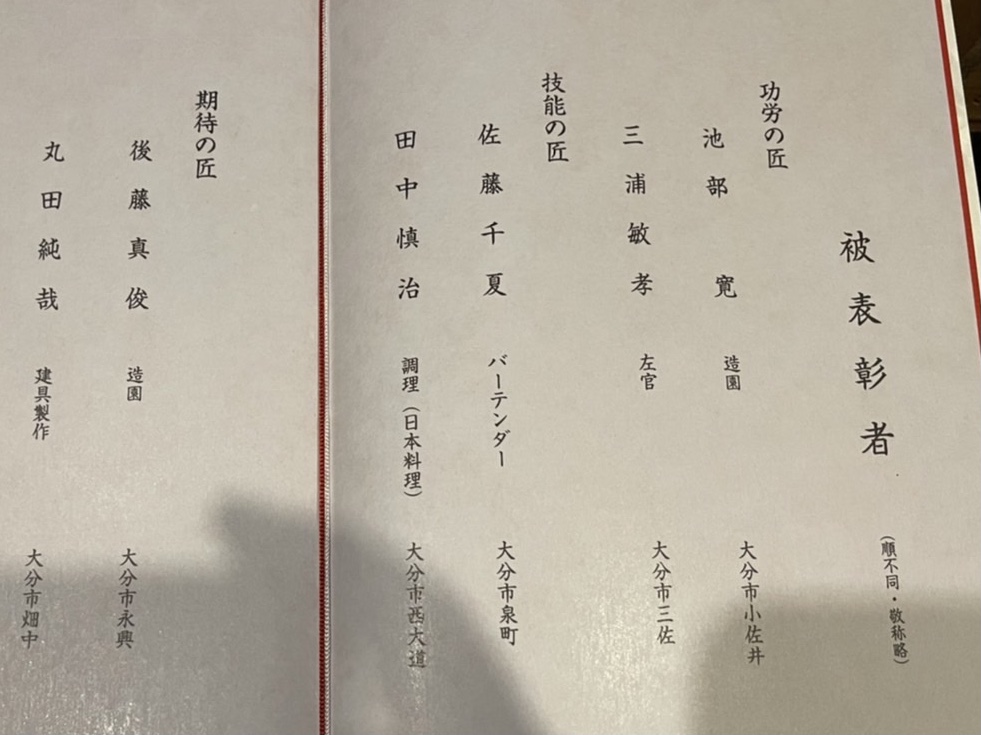 被表彰者
(順不同・敬称略)
功労の匠
池部 寛 造園 大分市小佐井
三浦敏孝 左官 大分市三佐
技能の匠
佐藤千夏 バーテンダー 大分市泉町
田中慎治 調理(日本料理) 大分市西大道
期待の匠
後藤真俊 造園 大分市永興
丸田純哉 建具製作 大分市畑中